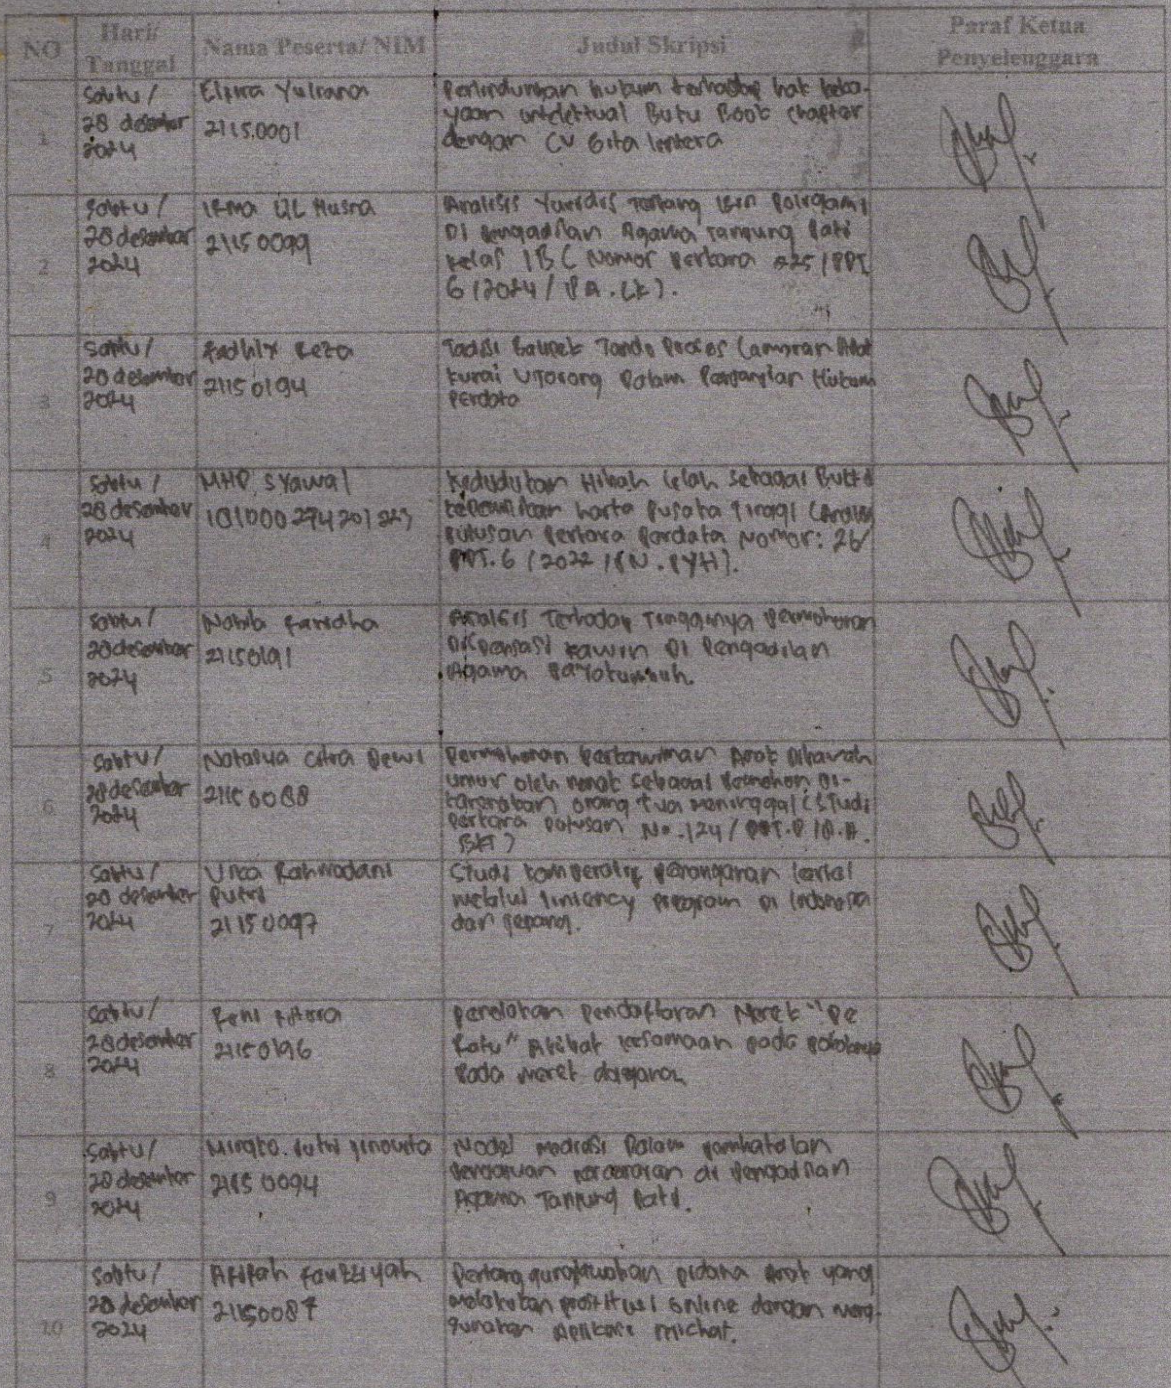 NO
Hari/
Tanggal
Nama Peserta/ NIM
Judul Skripsi
Paraf Ketua
Penyelenggara
1
Sabtu /
28 desember
2024
Elvira Yuliana
21150001
Perlindungan hukum terhadap hak keka-
yaan intelektual Buku Book chapter
dengan CV Gita lentera
2
Sabtu /
28 desember
2024
Irma UL Husna
21150099
Analisis Yuridis Tentang izin Poligami
Di Pengadilan Agama Tanjung Pati
kelas 1B ( Nomor Perkara 525 / PDT
G / 2024 / PA . LK ) .
3
Sabtu /
28 desember
2024
Fadhix Reza
21150194
Tradisi Tando Proses Lamaran Adat
kurai Dalam Hukum
Perdata
4
Sabtu /
28 desember
2024
MHD. Syawal
Kedudukan Hibah Sebagai Bukti
kepemilikan harta Pusaka Tinggi
putusan Perkara Perdata Nomor: 26/
PDT. G / 2022 / PN . PYH ) .
5
Sabtu /
28 desember
2024
Nabila Faridha
21150191
Analisis Terhadap Tingginya Permohonan
Dispensasi kawin Di Pengadilan
Agama Payakumbuh.
6
Sabtu /
28 desember
2024
Natasya Citra Dewi
21150088
Permohonan Perkawinan Anak Dibawah
umur oleh sebagai Pemohon Di-
karenakan orang tua meninggal ( Studi
Perkara Putusan No. 124 / PDT.P / P.A.
BKT )
7
Sabtu /
28 desember
2024
Rahmadani
Putri
21150097
Studi komperatif penanganan kartel
melalui liniency program Di Indonesia
dan jepang.
8
Sabtu /
28 desember
2024
Reni
21150196
Penolakan Pendaftaran Merek " De
Ratu " Akibat kesamaan pada pokoknya
Pada merek dagang
9
Sabtu /
28 desember
2024
Putri
21150094
Model mediasi Dalam pembatalan
Pengajuan perceraian di Pengadilan
Agama Tanjung Pati.
10
Sabtu /
28 desember
2024
Afifah Fauziyah
21150087
Pertanggungjawaban pidana Anak yang
melakukan prostitusi online dengan meng-
gunakan Aplikasi michat.